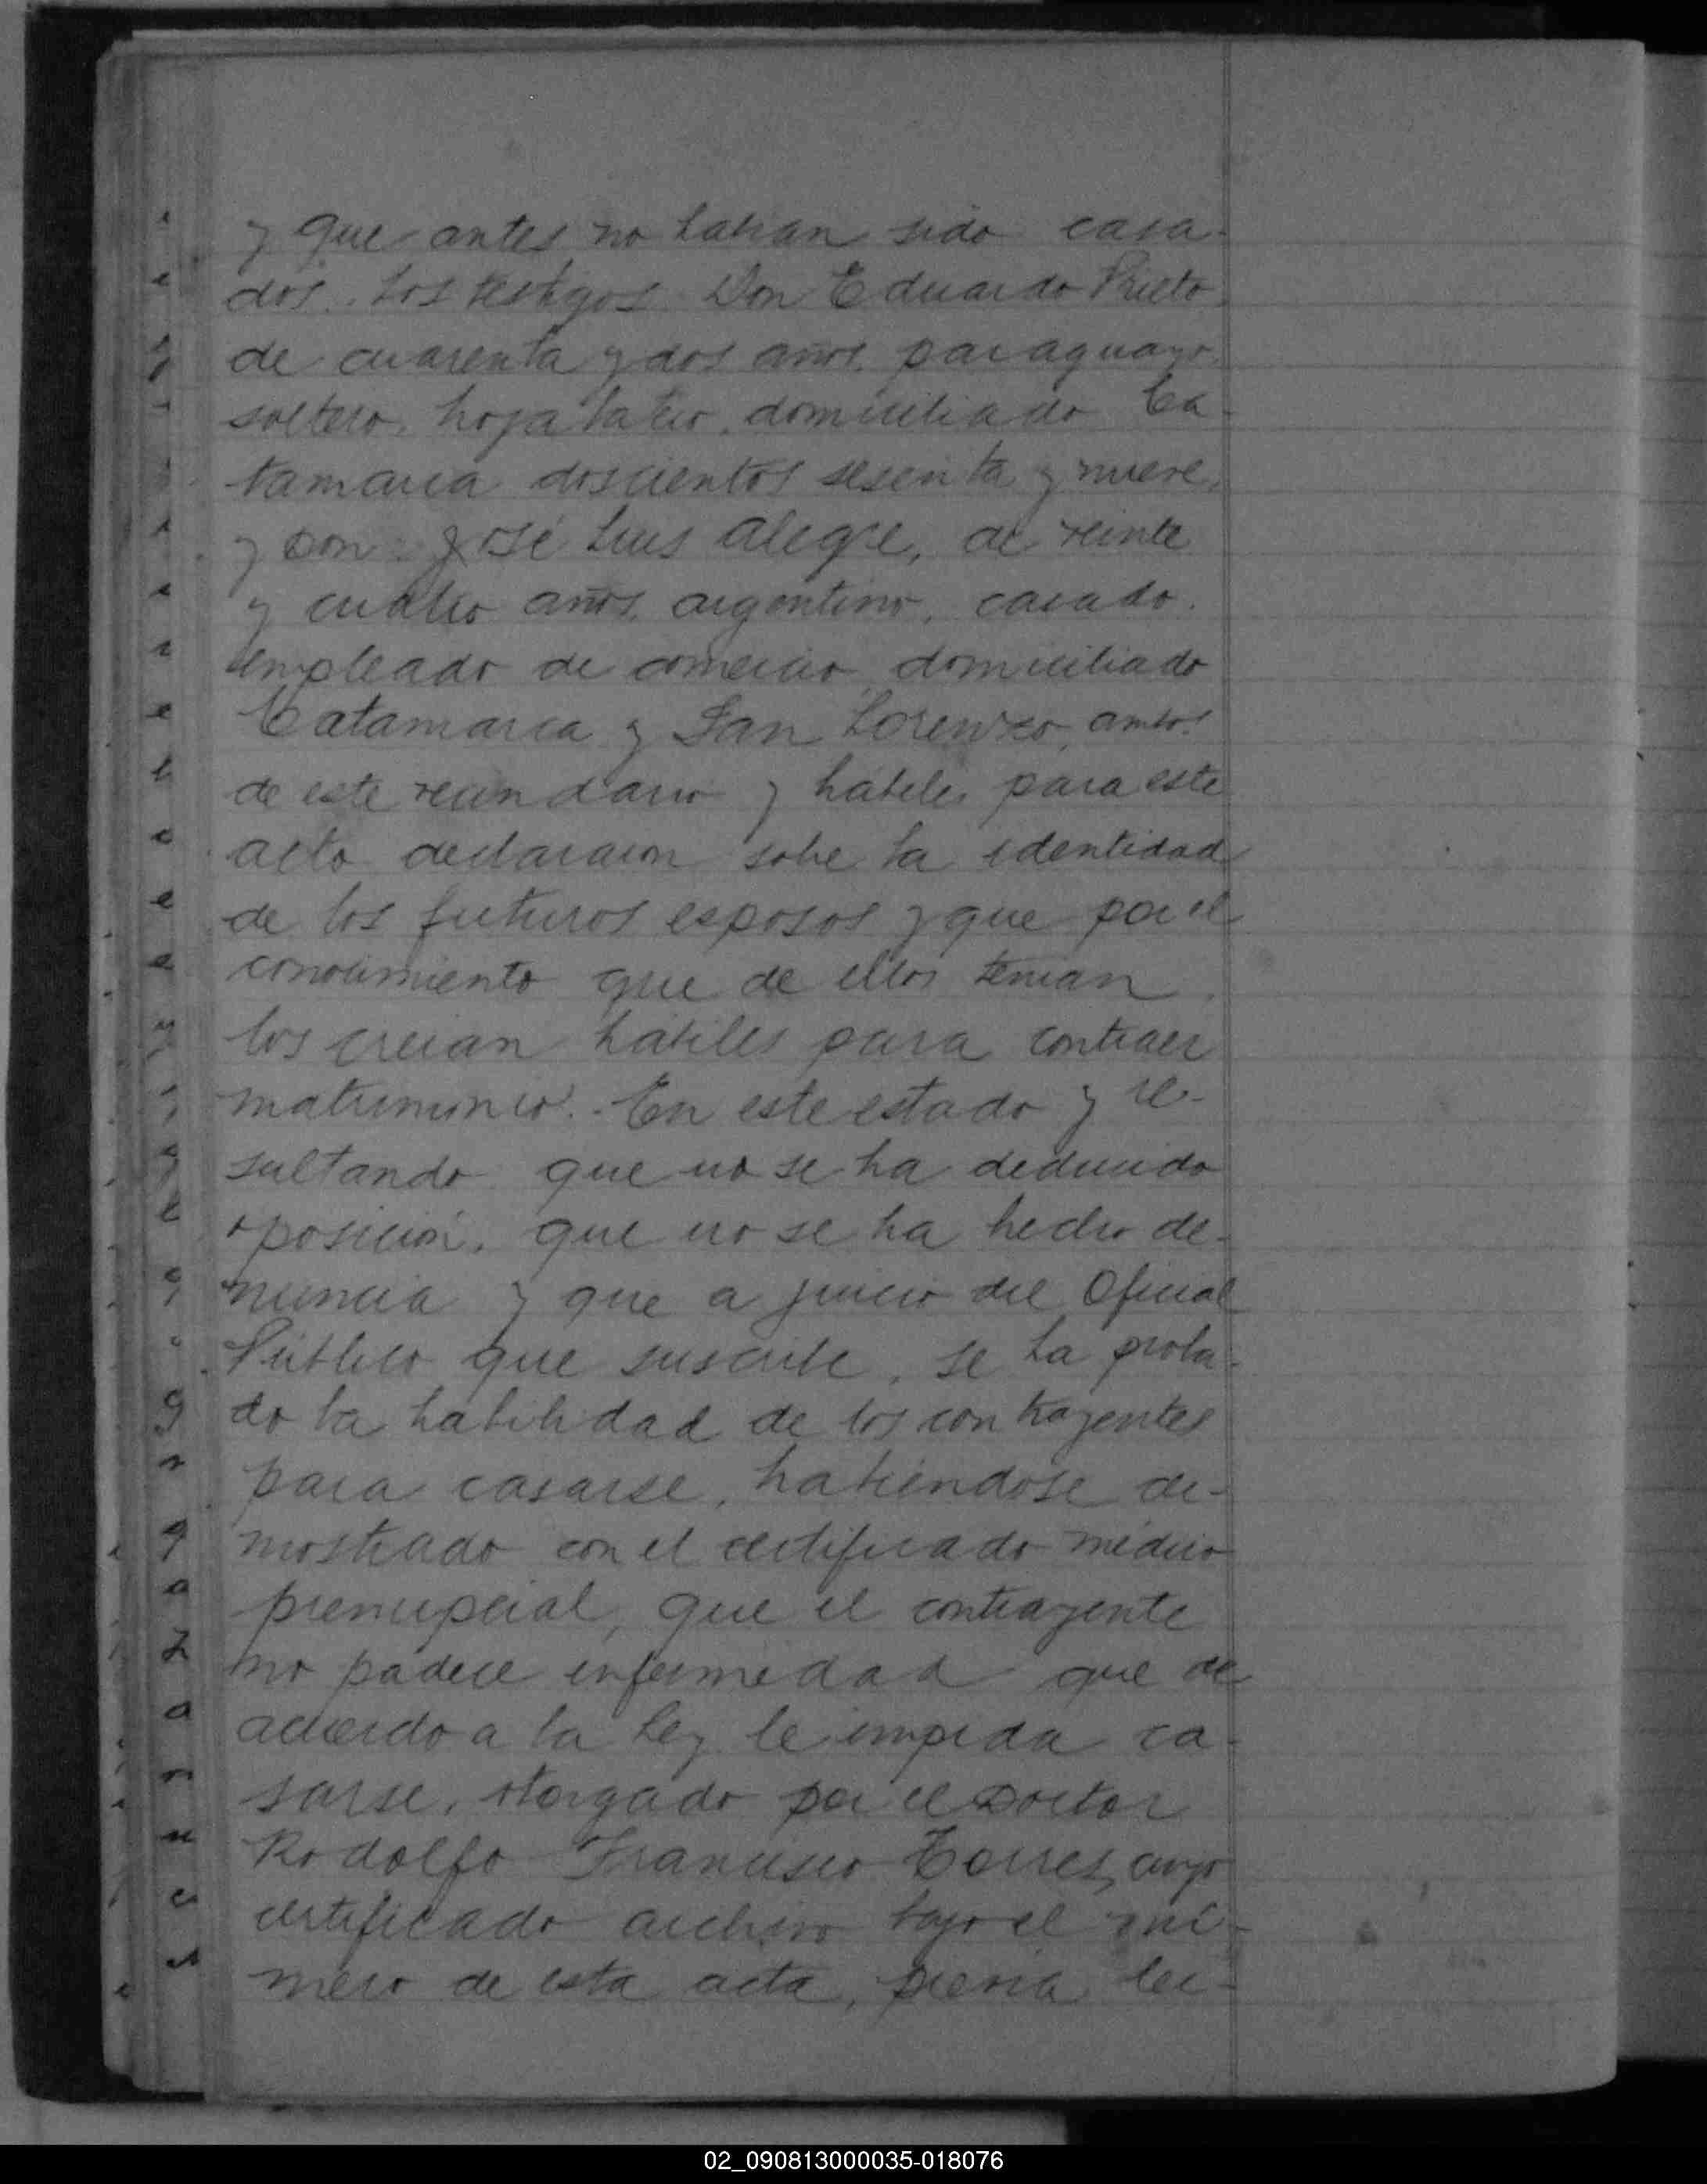 y que antes no habian sido casa-
dos. Los testigos Don Eduardo Prieto
de cuarenta y dos años, paraguayo,
soltero, hojalatero, domiciliado Ca-
tamarca doscientos sesenta y nueve,
y Don José Luis Alegre, de veinte
y cuatro años, argentino, casado,
empleado de comercio, domiciliado
Catamarca y San Lorenzo, ambos
de este vecindario y hábiles para este
acto declararon sobre la identidad
de los futuros esposos y que por el
conocimiento que de ellos tenian
los creian hábiles para contraer
matrimonio.- En este estado y re-
sultando que no se ha deducido
oposición, que no se ha hecho de-
nuncia y que a juicio del Oficial
Público que suscribe, se ha proba-
do la habilidad de los contrayentes
para casarse, habiéndose de-
mostrado con el certificado médico
prenupcial, que el contrayente
no padece enfermedad que de
acuerdo a la Ley le impida ca-
sarse, otorgado por el Doctor
Rodolfo Francisco Torres, cuyo
certificado archivo bajo el nú-
mero de esta acta, previa lec-
02_090813000035-018076